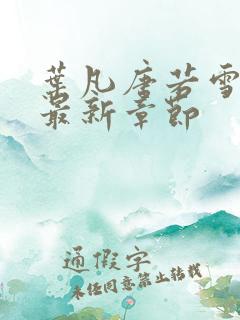 葉凡唐若雪
最新章節
通假字
未经同意禁止转载